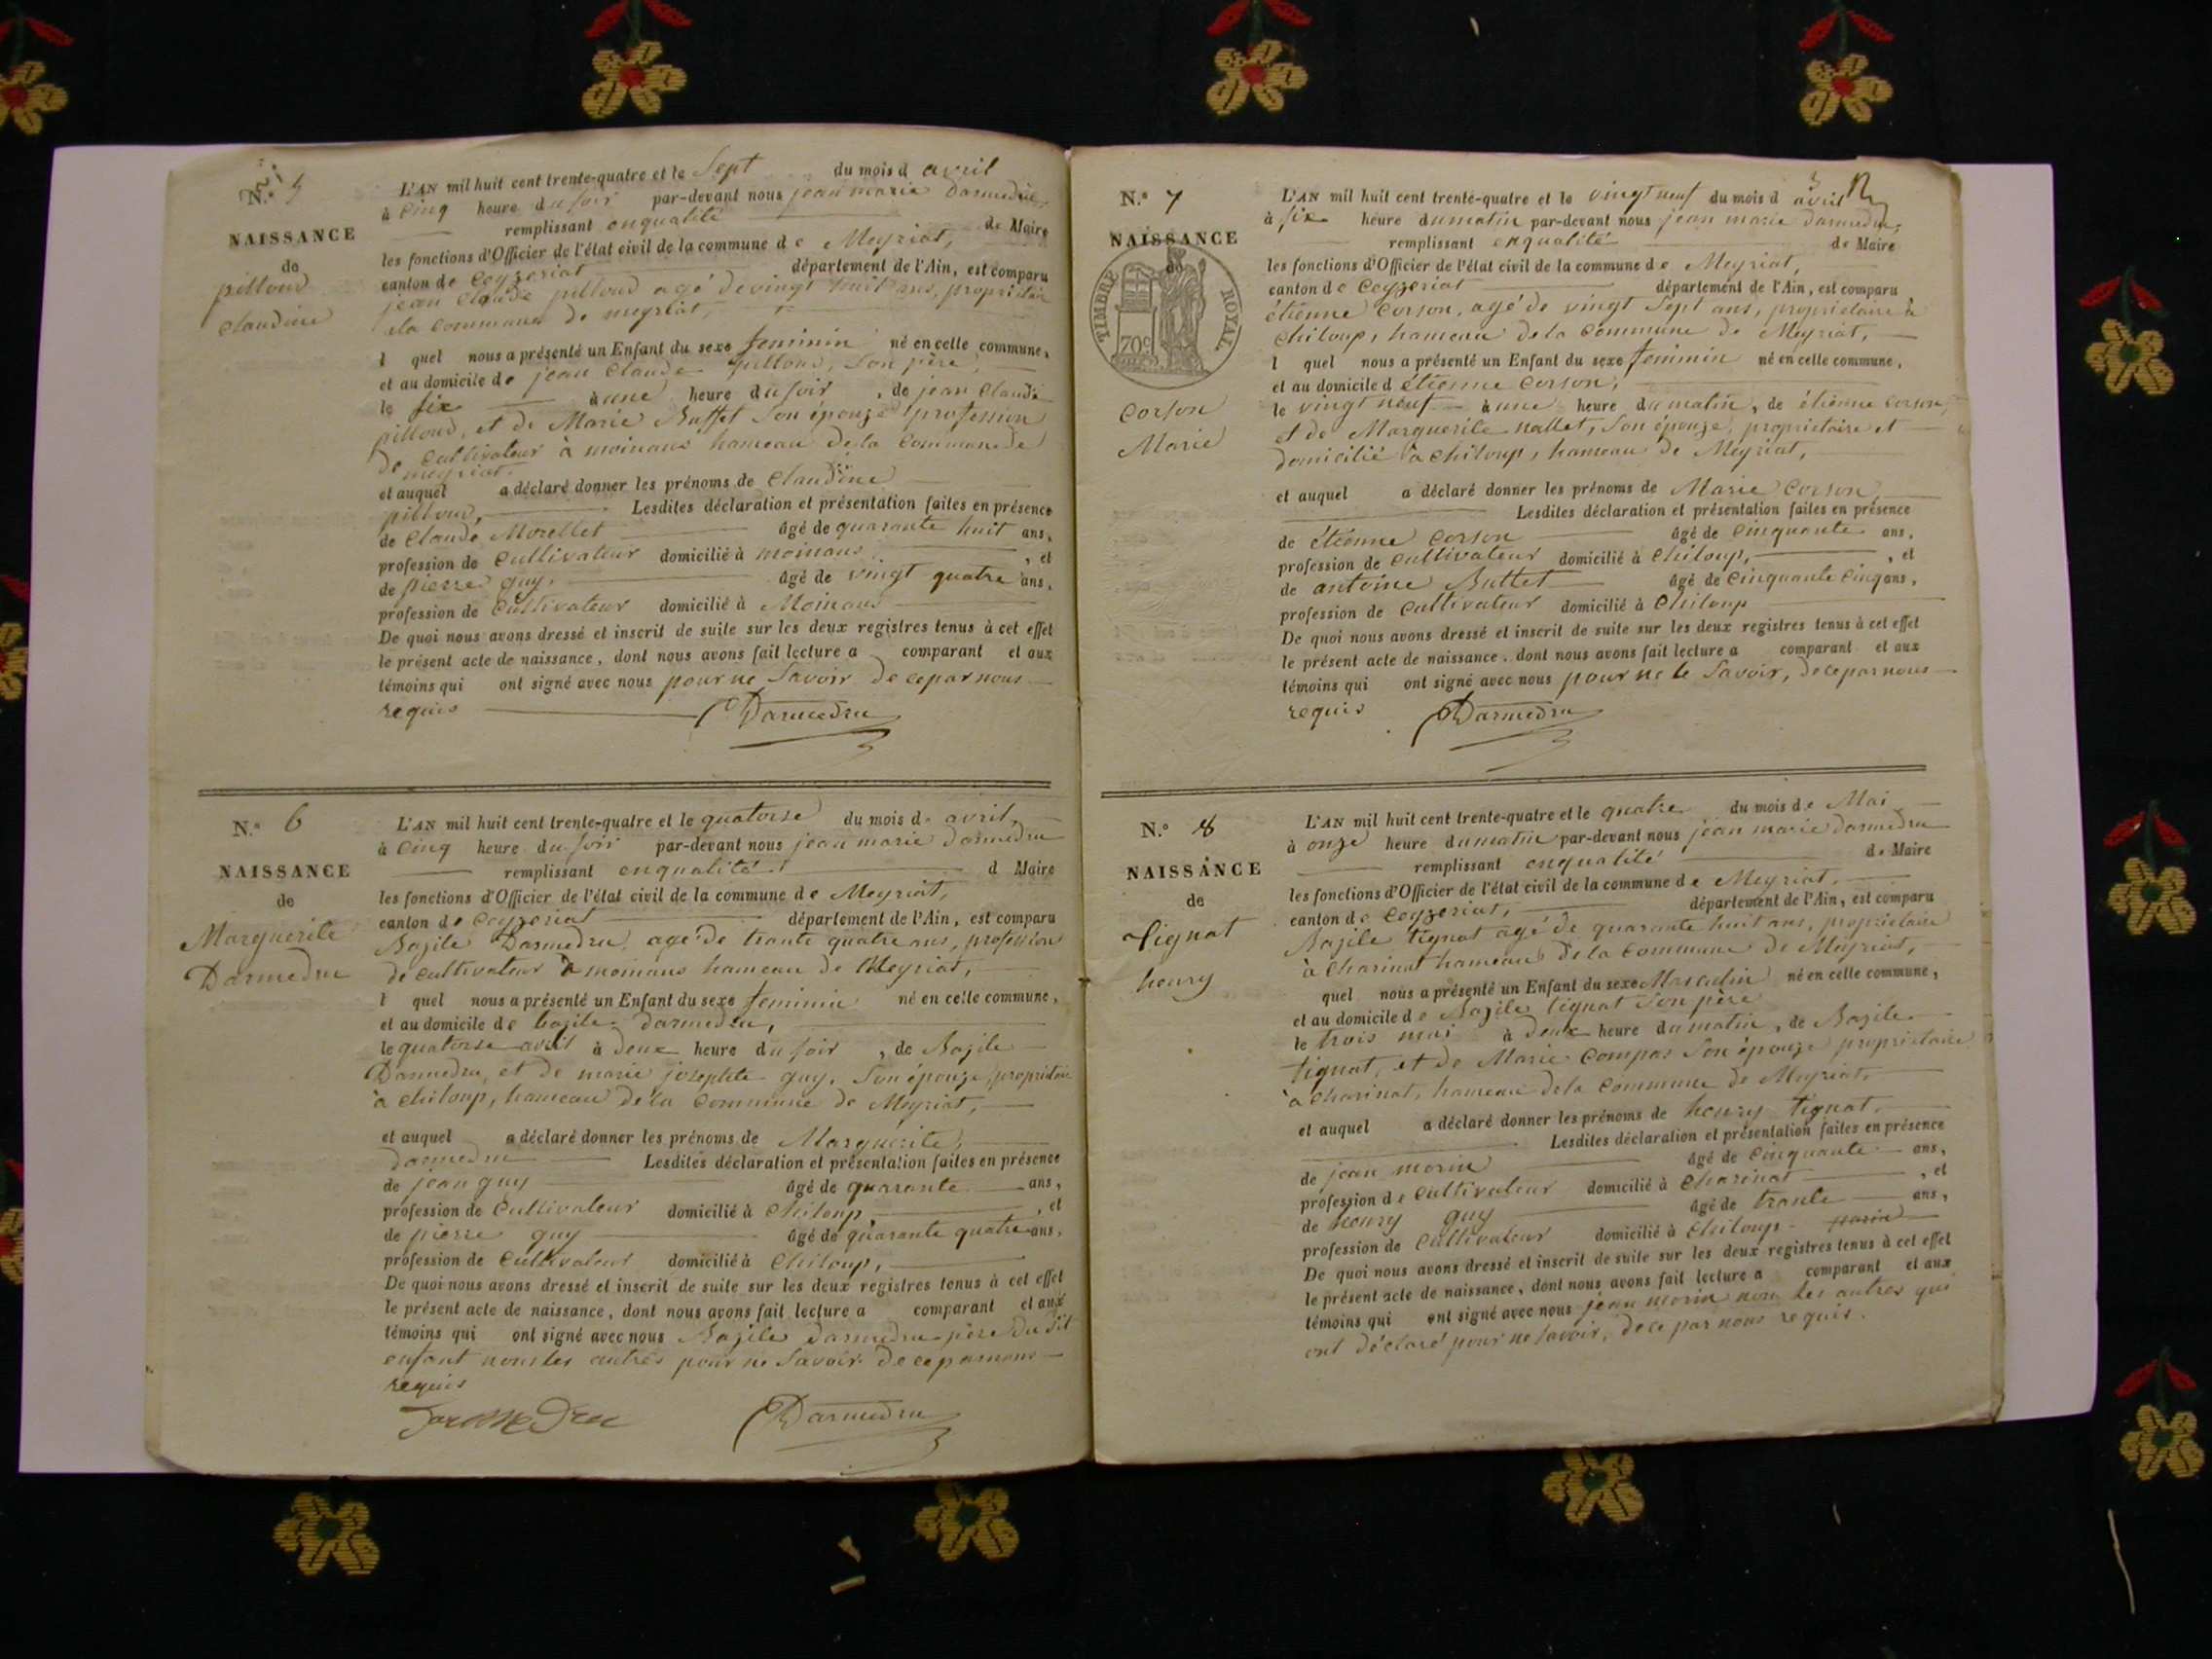 N.° 5
NAISSANCE
de
pilloud
claudine
L'AN mil huit cent trente-quatre et le Sept du mois d avril
à cinq heure du soir par-devant nous jean marie Darmedru,
remplissant enqualité de Maire
les fonctions d'Officier de l'état civil de la commune de Meyriat,
canton de Ceyzeriat département de l'Ain, est comparu
jean claude pilloud agé de vingt huit ans, propriétaire
de la commune de meyriat,
l quel nous a présenté un Enfant du sexe feminin né en celle commune,
et au domicile de jean Claude pilloud, Son père,
le six à une heure du soir , de jean Claude
pilloud, et de Marie Buffet Son épouze profession
de cultivateur à moinans hameau de la Commune de
meyriat.
et auquel a déclaré donner les prénoms de Claudine
pilloud, Lesdites déclaration et présentation faites en présence
de Claude Morellet âgé de quarante huit ans,
profession de Cultivateur domicilié à moinans , et
de pierre guy, âgé de vingt quatre ans,
profession de Cultivateur domicilié à Moinans
De quoi nous avons dressé et inscrit de suite sur les deux registres tenus à cet effet
le présent acte de naissance, dont nous avons fait lecture a comparant et aux
témoins qui ont signé avec nous pour ne Savoir de ce par nous
requis Darmedru
N.° 6
NAISSANCE
de
Marguerite
Darmedru
L'AN mil huit cent trente-quatre et le quatorse du mois d. avril,
à Cinq heure du soir par-devant nous jean marie Darmedru
remplissant enqualité d Maire
les fonctions d'Officier de l'état civil de la commune de Meyriat,
canton de Ceyzeriat département de l'Ain, est comparu
Bazile Darmedru, agé de trante quatre ans, profession
de cultivateur à moinans hameau de Meyriat,
l quel nous a présenté un Enfant du sexe feminin né en celle commune,
et au domicile de bazile darmedru,
le quatorse avril à deux heure du soir , de Bazile
Darmedru, et de marie josephte guy, Son épouze, propriétaire
à chiloup, hameau de la Commune de Meyriat,
et auquel a déclaré donner les prénoms de Marguerite,
darmedru Lesdites déclaration et présentation faites en présence
de jean guy âgé de quarante ans,
profession de Cultivateur domicilié à Chiloup, , et
de pierre guy âgé de quarante quatre ans,
profession de Cultivateur domicilié à Chiloup,
De quoi nous avons dressé et inscrit de suite sur les deux registres tenus à cet effet
le présent acte de naissance, dont nous avons fait lecture a comparant et aux
témoins qui ont signé avec nous Bazile darmedru père du dit
enfant non les autres pour ne Savoir de ce par nous
requis
Darmedru Darmedru
N.° 7
NAISSANCE
de
TIMBRE ROYAL
70c
Corson
Marie
L'AN mil huit cent trente-quatre et le vingt neuf du mois d avril
à six heure du matin par-devant nous jean marie darmedru,
remplissant enqualité de Maire
les fonctions d'Officier de l'état civil de la commune de Meyriat,
canton de Ceyzeriat département de l'Ain, est comparu
étienne Corson, agé de vingt Sept ans, propriétaire à
chiloup, hameau de la Commune de Meyriat,
l quel nous a présenté un Enfant du sexe feminin né en celle commune,
et au domicile d étienne Corson,
le vingt neuf à une heure du matin, de étienne Corson,
et de Marguerite nallet, Son épouze, propriétaire et
domicilié à chiloup, hameau de Meyriat,
et auquel a déclaré donner les prénoms de Marie Corson
Lesdites déclaration et présentation faites en présence
de étienne Corson âgé de cinquante ans,
profession de Cultivateur domicilié à Chiloup, , et
de antoine Buttet âgé de Cinquante Cinq ans,
profession de Cultivateur domicilié à Chiloup
De quoi nous avons dressé et inscrit de suite sur les deux registres tenus à cet effet
le présent acte de naissance, dont nous avons fait lecture a comparant et aux
témoins qui ont signé avec nous pour ne le Savoir, de ce par nous
requis Darmedru
N.° 8
NAISSANCE
de
tignat
henry
L'AN mil huit cent trente-quatre et le quatre du mois de Mai
à onze heure du matin par-devant nous jean marie darmedru
remplissant enqualité de Maire
les fonctions d'Officier de l'état civil de la commune de Meyriat,
canton de Ceyzeriat, département de l'Ain, est comparu
Bazile tignat agé de quarante huit ans, propriétaire
à Charinat hameau de la Commune de Meyriat,
quel nous a présenté un Enfant du sexe Masculin né en celle commune,
et au domicile de Bazile tignat Son père
le trois mai à deux heure du matin, de Bazile
tignat, et de Marie Compas Son épouze propriétaire
à Charinat, hameau de la Commune de Meyriat,
et auquel a déclaré donner les prénoms de henry tignat,
Lesdites déclaration et présentation faites en présence
de jean morin âgé de Cinquante ans,
profession de Cultivateur domicilié à Charinat , et
de henry guy âgé de trante ans,
profession de Cultivateur domicilié à Chiloup
De quoi nous avons dressé et inscrit de suite sur les deux registres tenus à cet effet
le présent acte de naissance, dont nous avons fait lecture a comparant et aux
témoins qui ont signé avec nous jean morin non les autres qui
ont déclaré pour ne Savoir, de ce par nous requis.